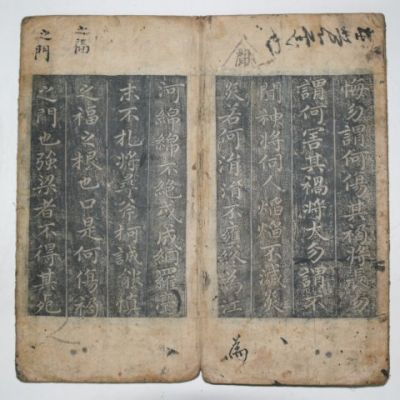 聞
悔勿謂何傷其禍將長勿
謂何害其禍將大勿謂不
聞神將伺人焰焰不滅炎
炎若何涓涓不壅終為江
為
之福
之門
河綿綿不絕或成網羅毫
末不札將尋斧柯誠能慎
之福之根也口是何傷禍
之門也強梁者不得其死